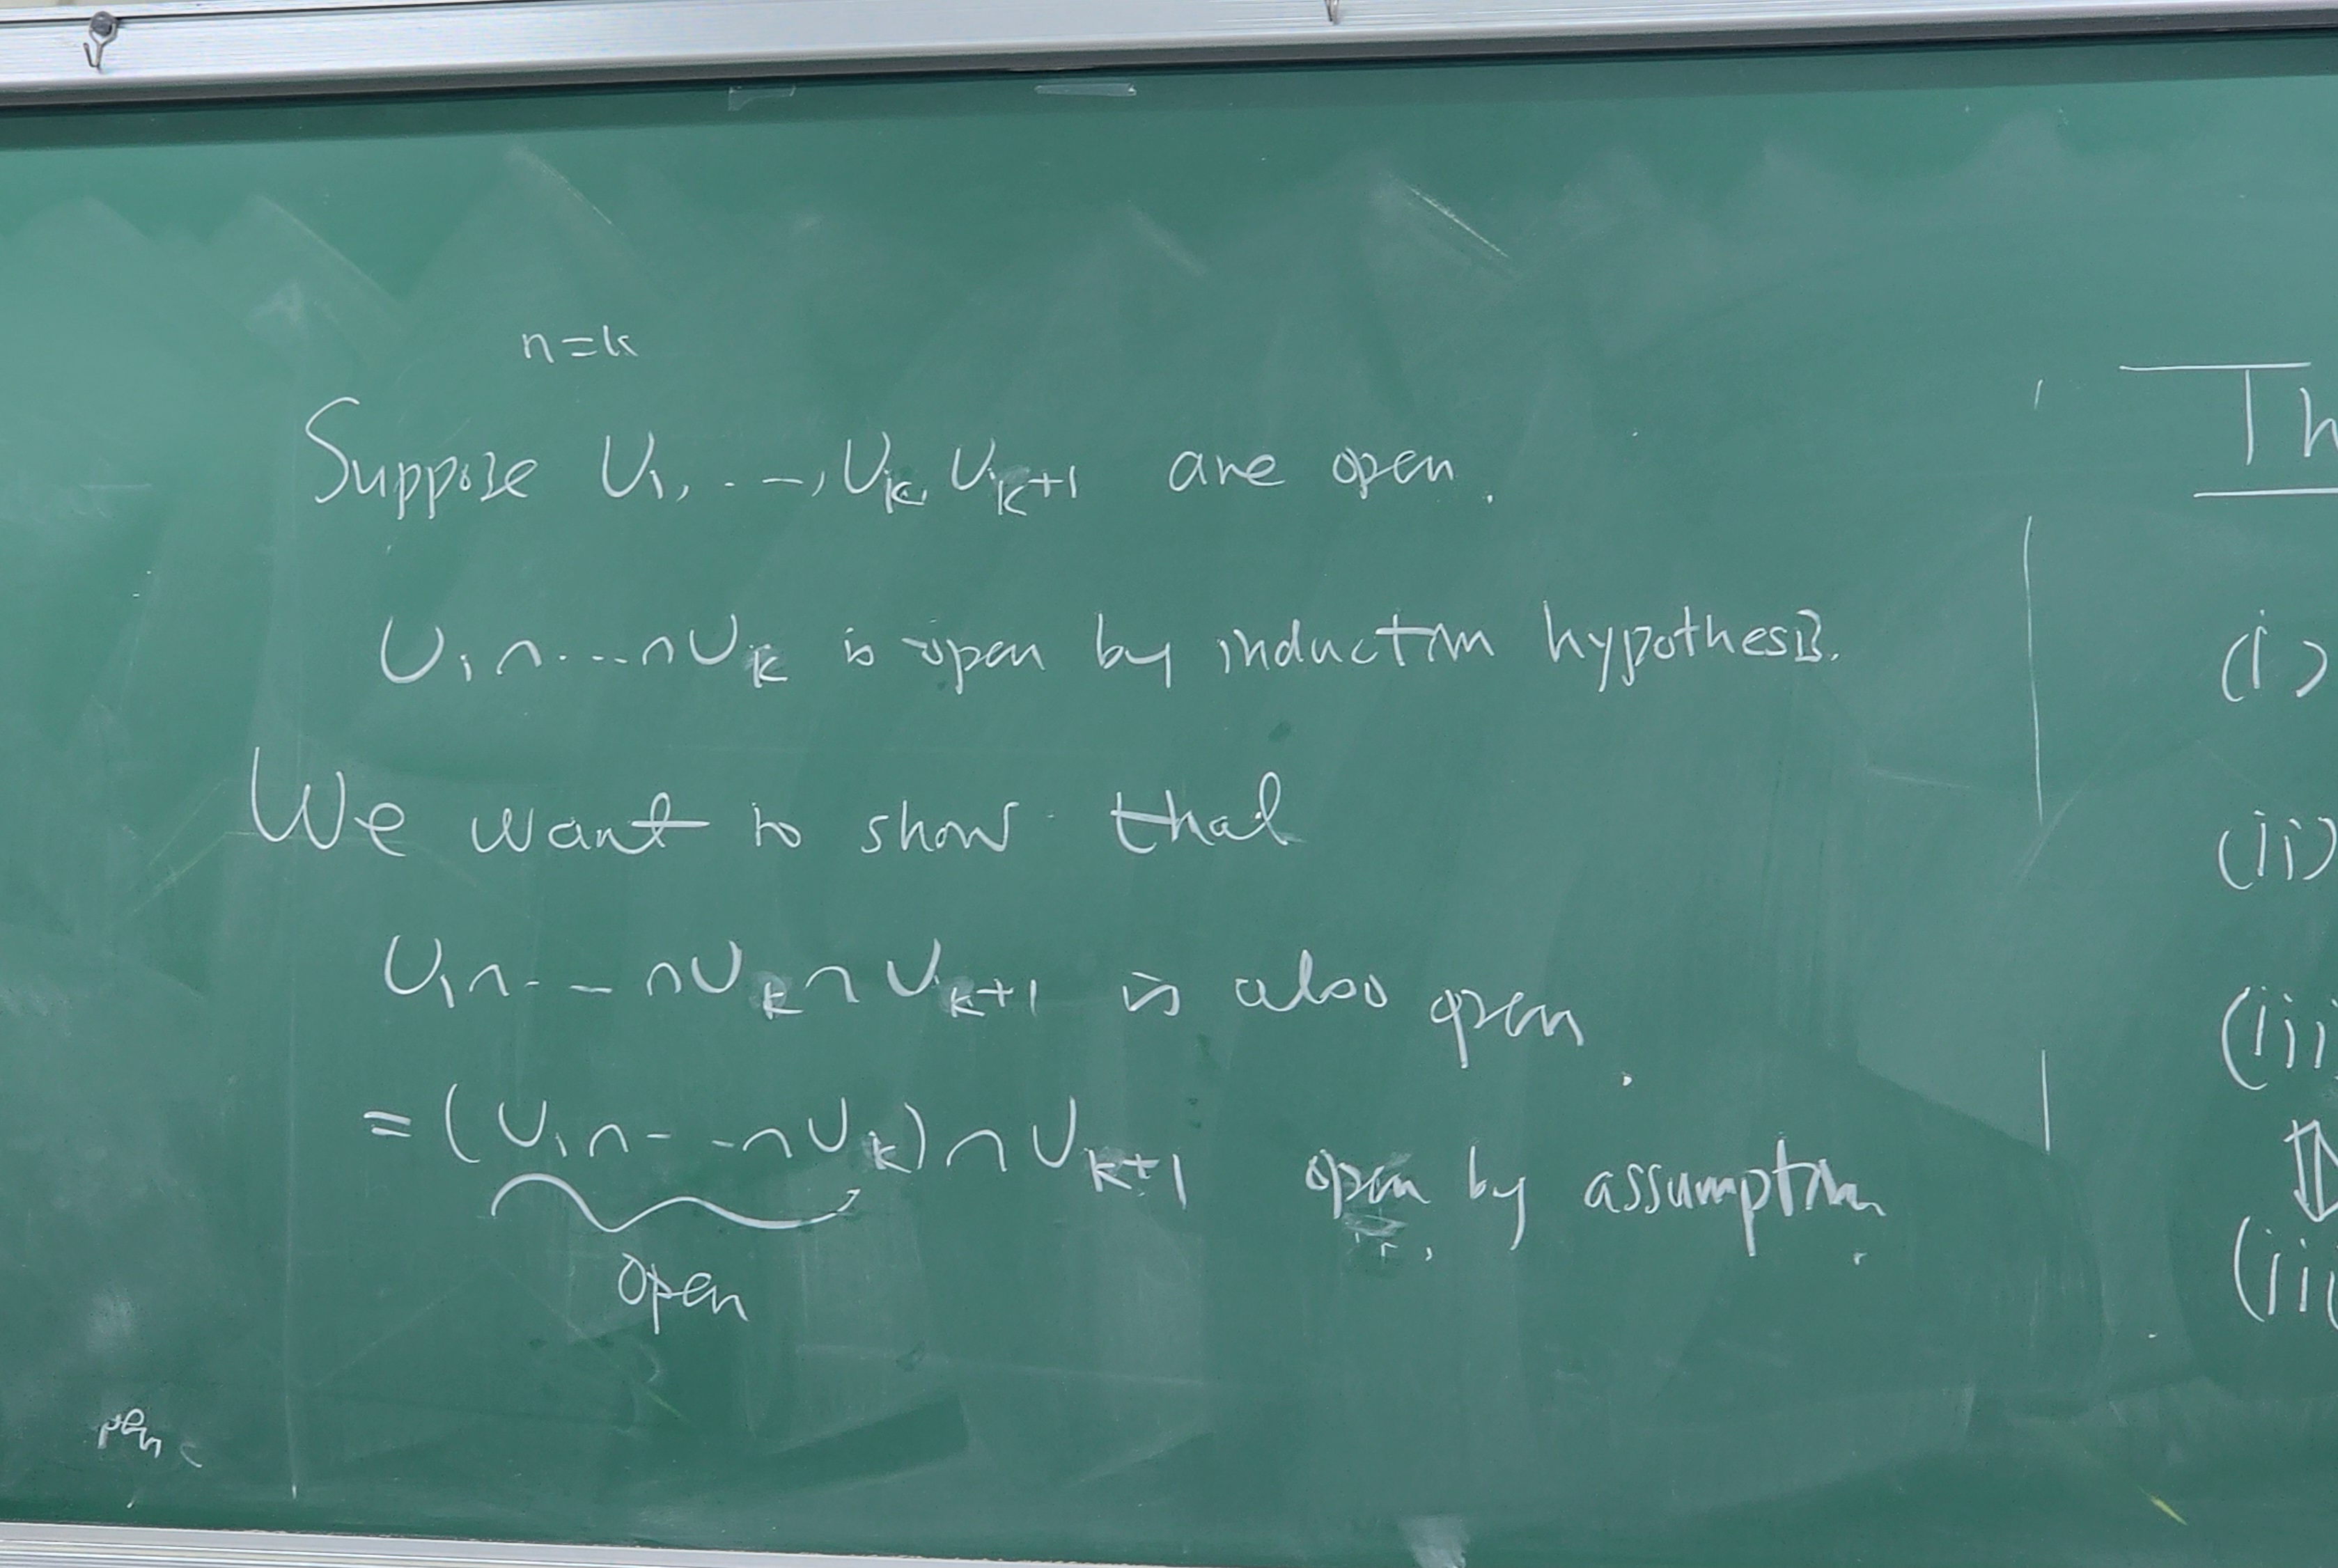 n=k
Suppose U₁, . - -, Uₖ, Uₖ₊₁ are open.
U₁∩...∩Uₖ is open by induction hypothesis.
We want to show that
U₁∩- - ∩Uₖ∩Uₖ₊₁ is also open.
= (U₁∩- -∩Uₖ)∩Uₖ₊₁ open by assumption.
open
pen
Th
(i)
(ii)
(iii
(ii